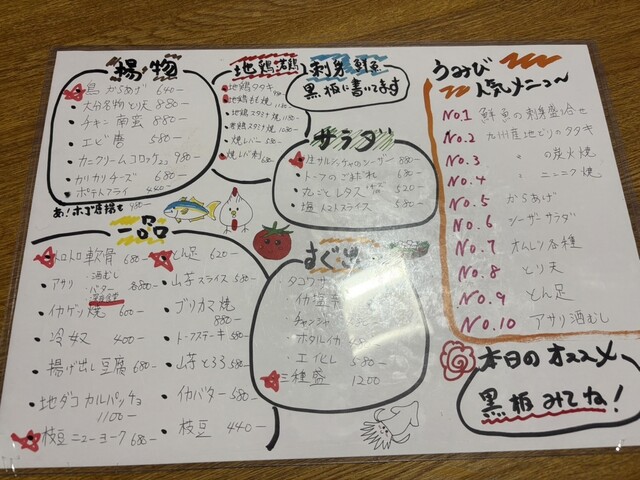 揚物
鶏からあげ 640-
大分名物とり天 880-
チキン南蛮 880-
エビ 580-
カニクリームコロッケ 980-
カリカリチーズ 680-
ポテトフライ 440-
あ!ホネ唐揚も 980-
地鶏 若鶏
地鶏タタキ
地鶏もも焼
地鶏スタミナ焼
若鶏スタミナ焼
焼レバー 580-
焼レバ刺 680-
刺身 鮮魚
黒板に書いてます
サラダ
生サルシッチャのシーザー 880-
トーフのごまだれ 680-
丸ごとレタス 520-
塩トマトスライス 580-
一品
トロトロ軟骨 680-
アサリ ・酒むし
・バター 各880-
イカゲソ焼 600-
冷奴 400-
揚げ出し豆腐 680-
地ダコカルパッチョ
1100-
枝豆ニューヨーク 680-
とん足 620-
山芋スライス 580-
ブリカマ焼
880-
トーフステーキ 580-
山芋とろろ 580-
イカバター 580-
枝豆 440-
すぐ出
タコワサ
イカ塩辛
チャンジャ
ホタルイカ
エイヒレ 580-
三種盛 1200
うみび
人気メニュー
No.1 鮮魚の刺身盛合せ
No.2 九州産地どりのタタキ
No.3 〃 の炭火焼
No.4 〃 ニンニク焼
No.5 からあげ
No.6 シーザーサラダ
No.7 オムレツ各種
No.8 とり天
No.9 とん足
No.10 アサリ酒むし
本日のオススメ
黒板みてね!